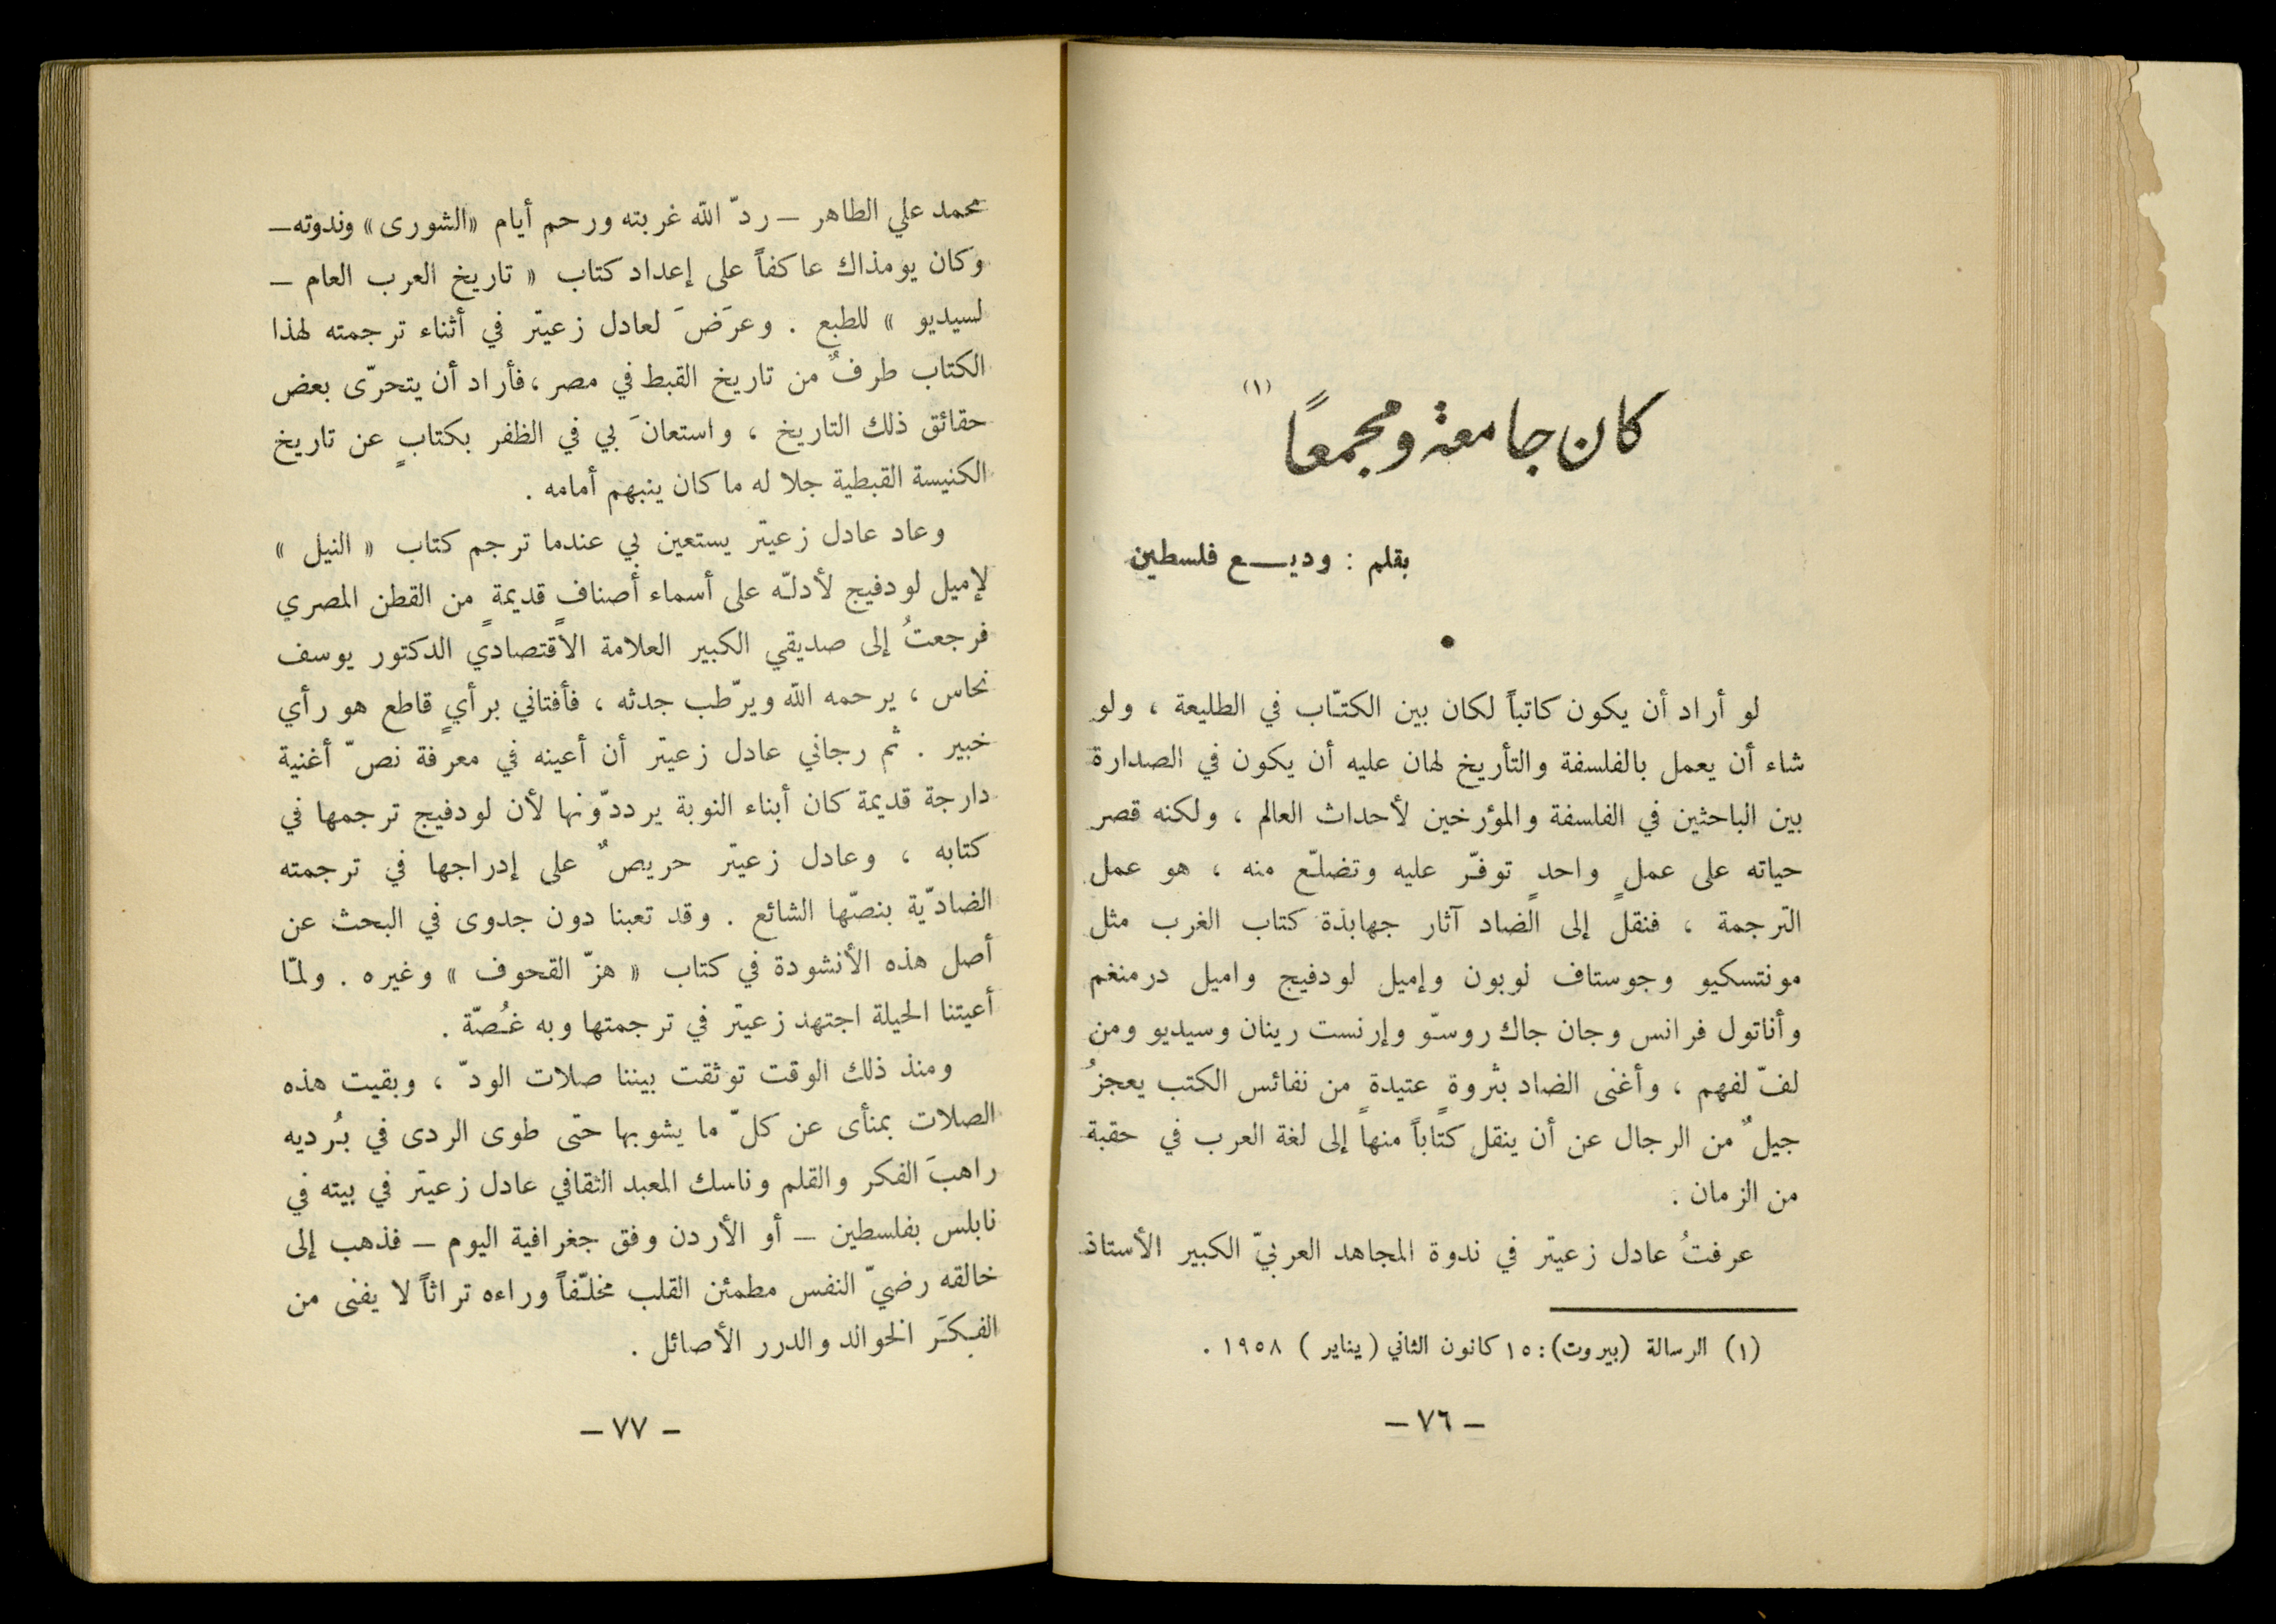 كان جامعة ومجمعاً (١)
بقلم : وديـــع فلسطين
لو أراد أن يكون كاتباً لكان بين الكتّاب في الطليعة ، ولو
شاء أن يعمل بالفلسفة والتأريخ لهان عليه أن يكون في الصدارة
بين الباحثين في الفلسفة والمؤرخين لأحداث العالم ، ولكنه قصر
حياته على عملٍ واحدٍ توفّر عليه وتضلّع منه ، هو عمل
الترجمة ، فنقل إلى الضاد آثار جهابذة كتاب الغرب مثل
مونتسكيو وجوستاف لوبون وإميل لودفيج واميل درمنغم
وأناتول فرانس وجان جاك روسّو وإرنست رينان وسيديو ومن
لفّ لفهم ، وأغنى الضاد بثروةٍ عتيدةٍ من نفائس الكتب يعجزُ
جيلٌ من الرجال عن أن ينقل كتاباً منها إلى لغة العرب في حقبة
من الزمان .
عرفتُ عادل زعيتر في ندوة المجاهد العربيّ الكبير الأستاذ
(١) الرسالة (بيروت): ١٥ كانون الثاني (يناير ) ١٩٥٨ .
– ٧٦ –
محمد علي الطاهر – ردّ الله غربته ورحم أيام «الشورى» وندوته –
وكان يومذاك عاكفاً على إعداد كتاب « تاريخ العرب العام –
لسيديو » للطبع . وعرَضَ لعادل زعيتر في أثناء ترجمته لهذا
الكتاب طرفٌ من تاريخ القبط في مصر ، فأراد أن يتحرّى بعض
حقائق ذلك التاريخ ، واستعانَ بي في الظفر بكتابٍ عن تاريخ
الكنيسة القبطية جلا له ما كان ينبهم أمامه .
وعاد عادل زعيتر يستعين بي عندما ترجم كتاب « النيل »
لإميل لودفيج لأدلّه على أسماء أصنافٍ قديمةٍ من القطن المصري
فرجعتُ إلى صديقي الكبير العلامة الاقتصادي الدكتور يوسف
نحاس ، يرحمه الله ويرّطب جدثه ، فأفتاني برأيٍ قاطع هو رأي
خبير . ثم رجاني عادل زعيتر أن أعينه في معرفة نصّ أغنية
دارجة قديمة كان أبناء النوبة يرددّونها لأن لودفيج ترجمها في
كتابه ، وعادل زعيتر حريصٌ على إدراجها في ترجمته
الضاديّة بنصّها الشائع . وقد تعبنا دون جدوى في البحث عن
أصل هذه الأنشودة في كتاب « هزّ القحوف » وغيره . ولمّا
أعيتنا الحيلة اجتهد زعيتر في ترجمتها وبه غُصّة .
ومنذ ذلك الوقت توثقت بيننا صلات الودّ ، وبقيت هذه
الصلات بمنأى عن كلّ ما يشوبها حتى طوى الردى في بُرديه
راهبَ الفكر والقلم وناسك المعبد الثقافي عادل زعيتر في بيته في
نابلس بفلسطين – أو الأردن وفق جغرافية اليوم – فذهب إلى
خالقه رضيّ النفس مطمئن القلب مخلّفاً وراءه تراثاً لا يفنى من
الفِكَر الخوالد والدرر الأصائل .
– ٧٧ –